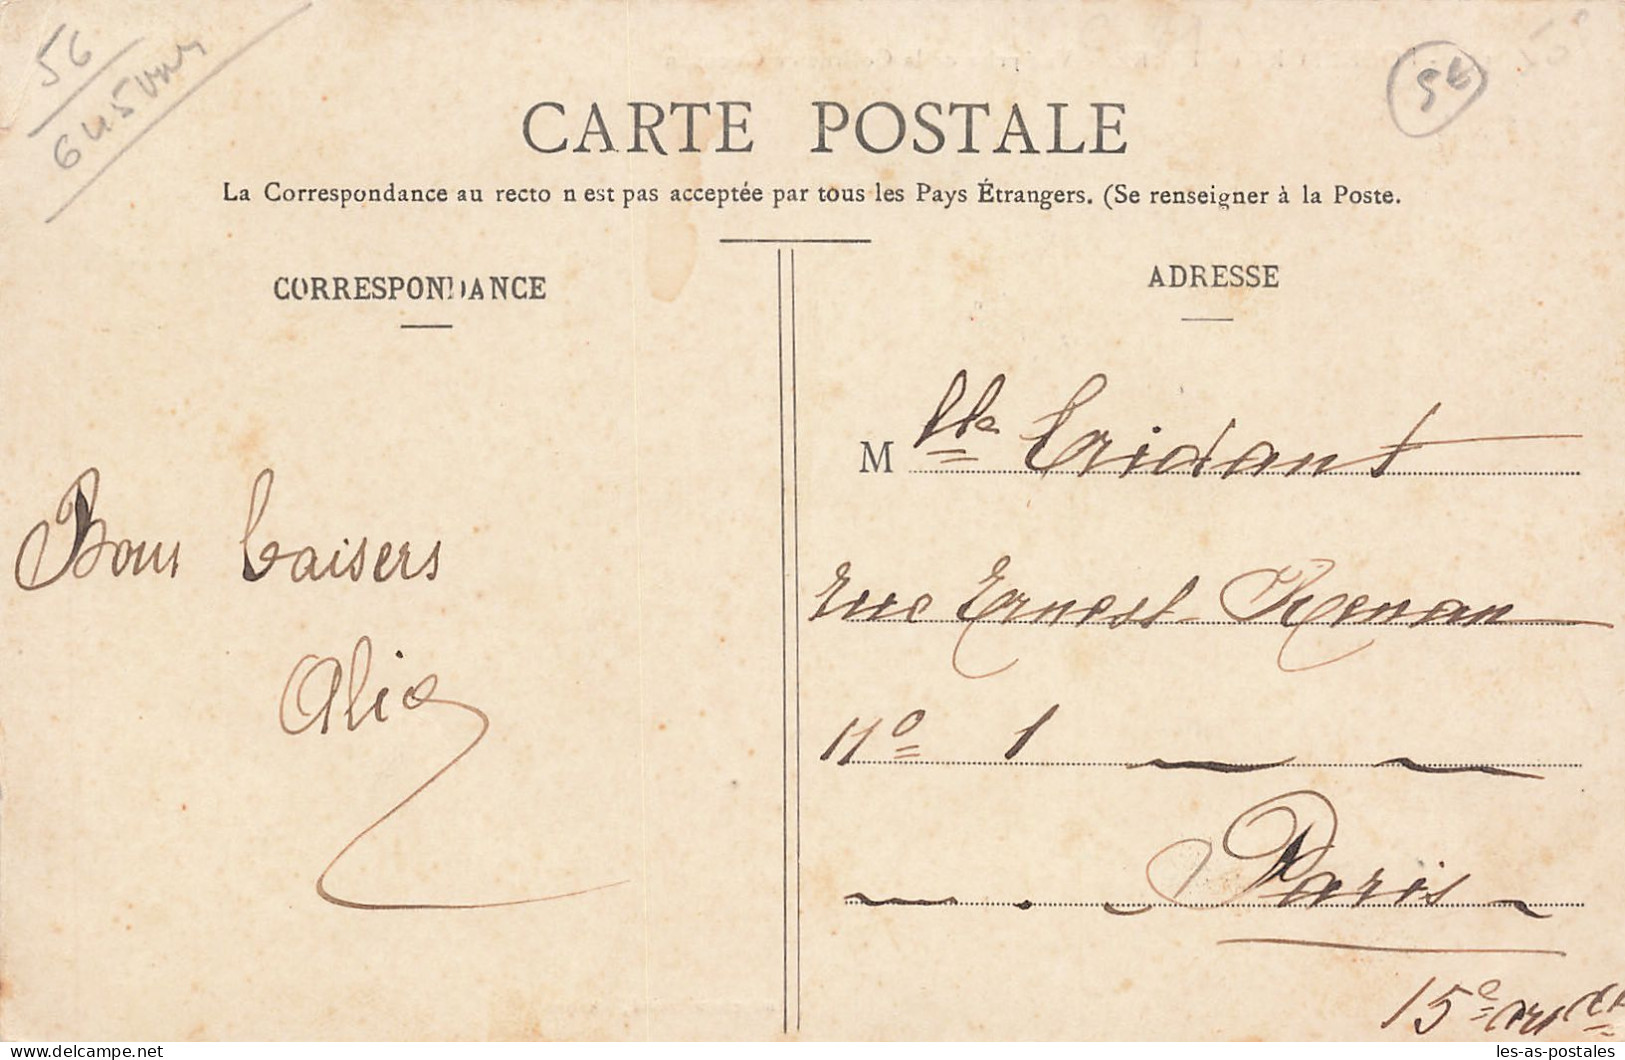 56
5€
CARTE POSTALE
La Correspondance au recto n est pas acceptée par tous les Pays Étrangers. (Se renseigner à la Poste.
CORRESPONDANCE
Bons baisers
Alic
ADRESSE
Mlle Tridant
Rue Ernest Renan
N° 1
Paris
15e arrdt
les-as-postales